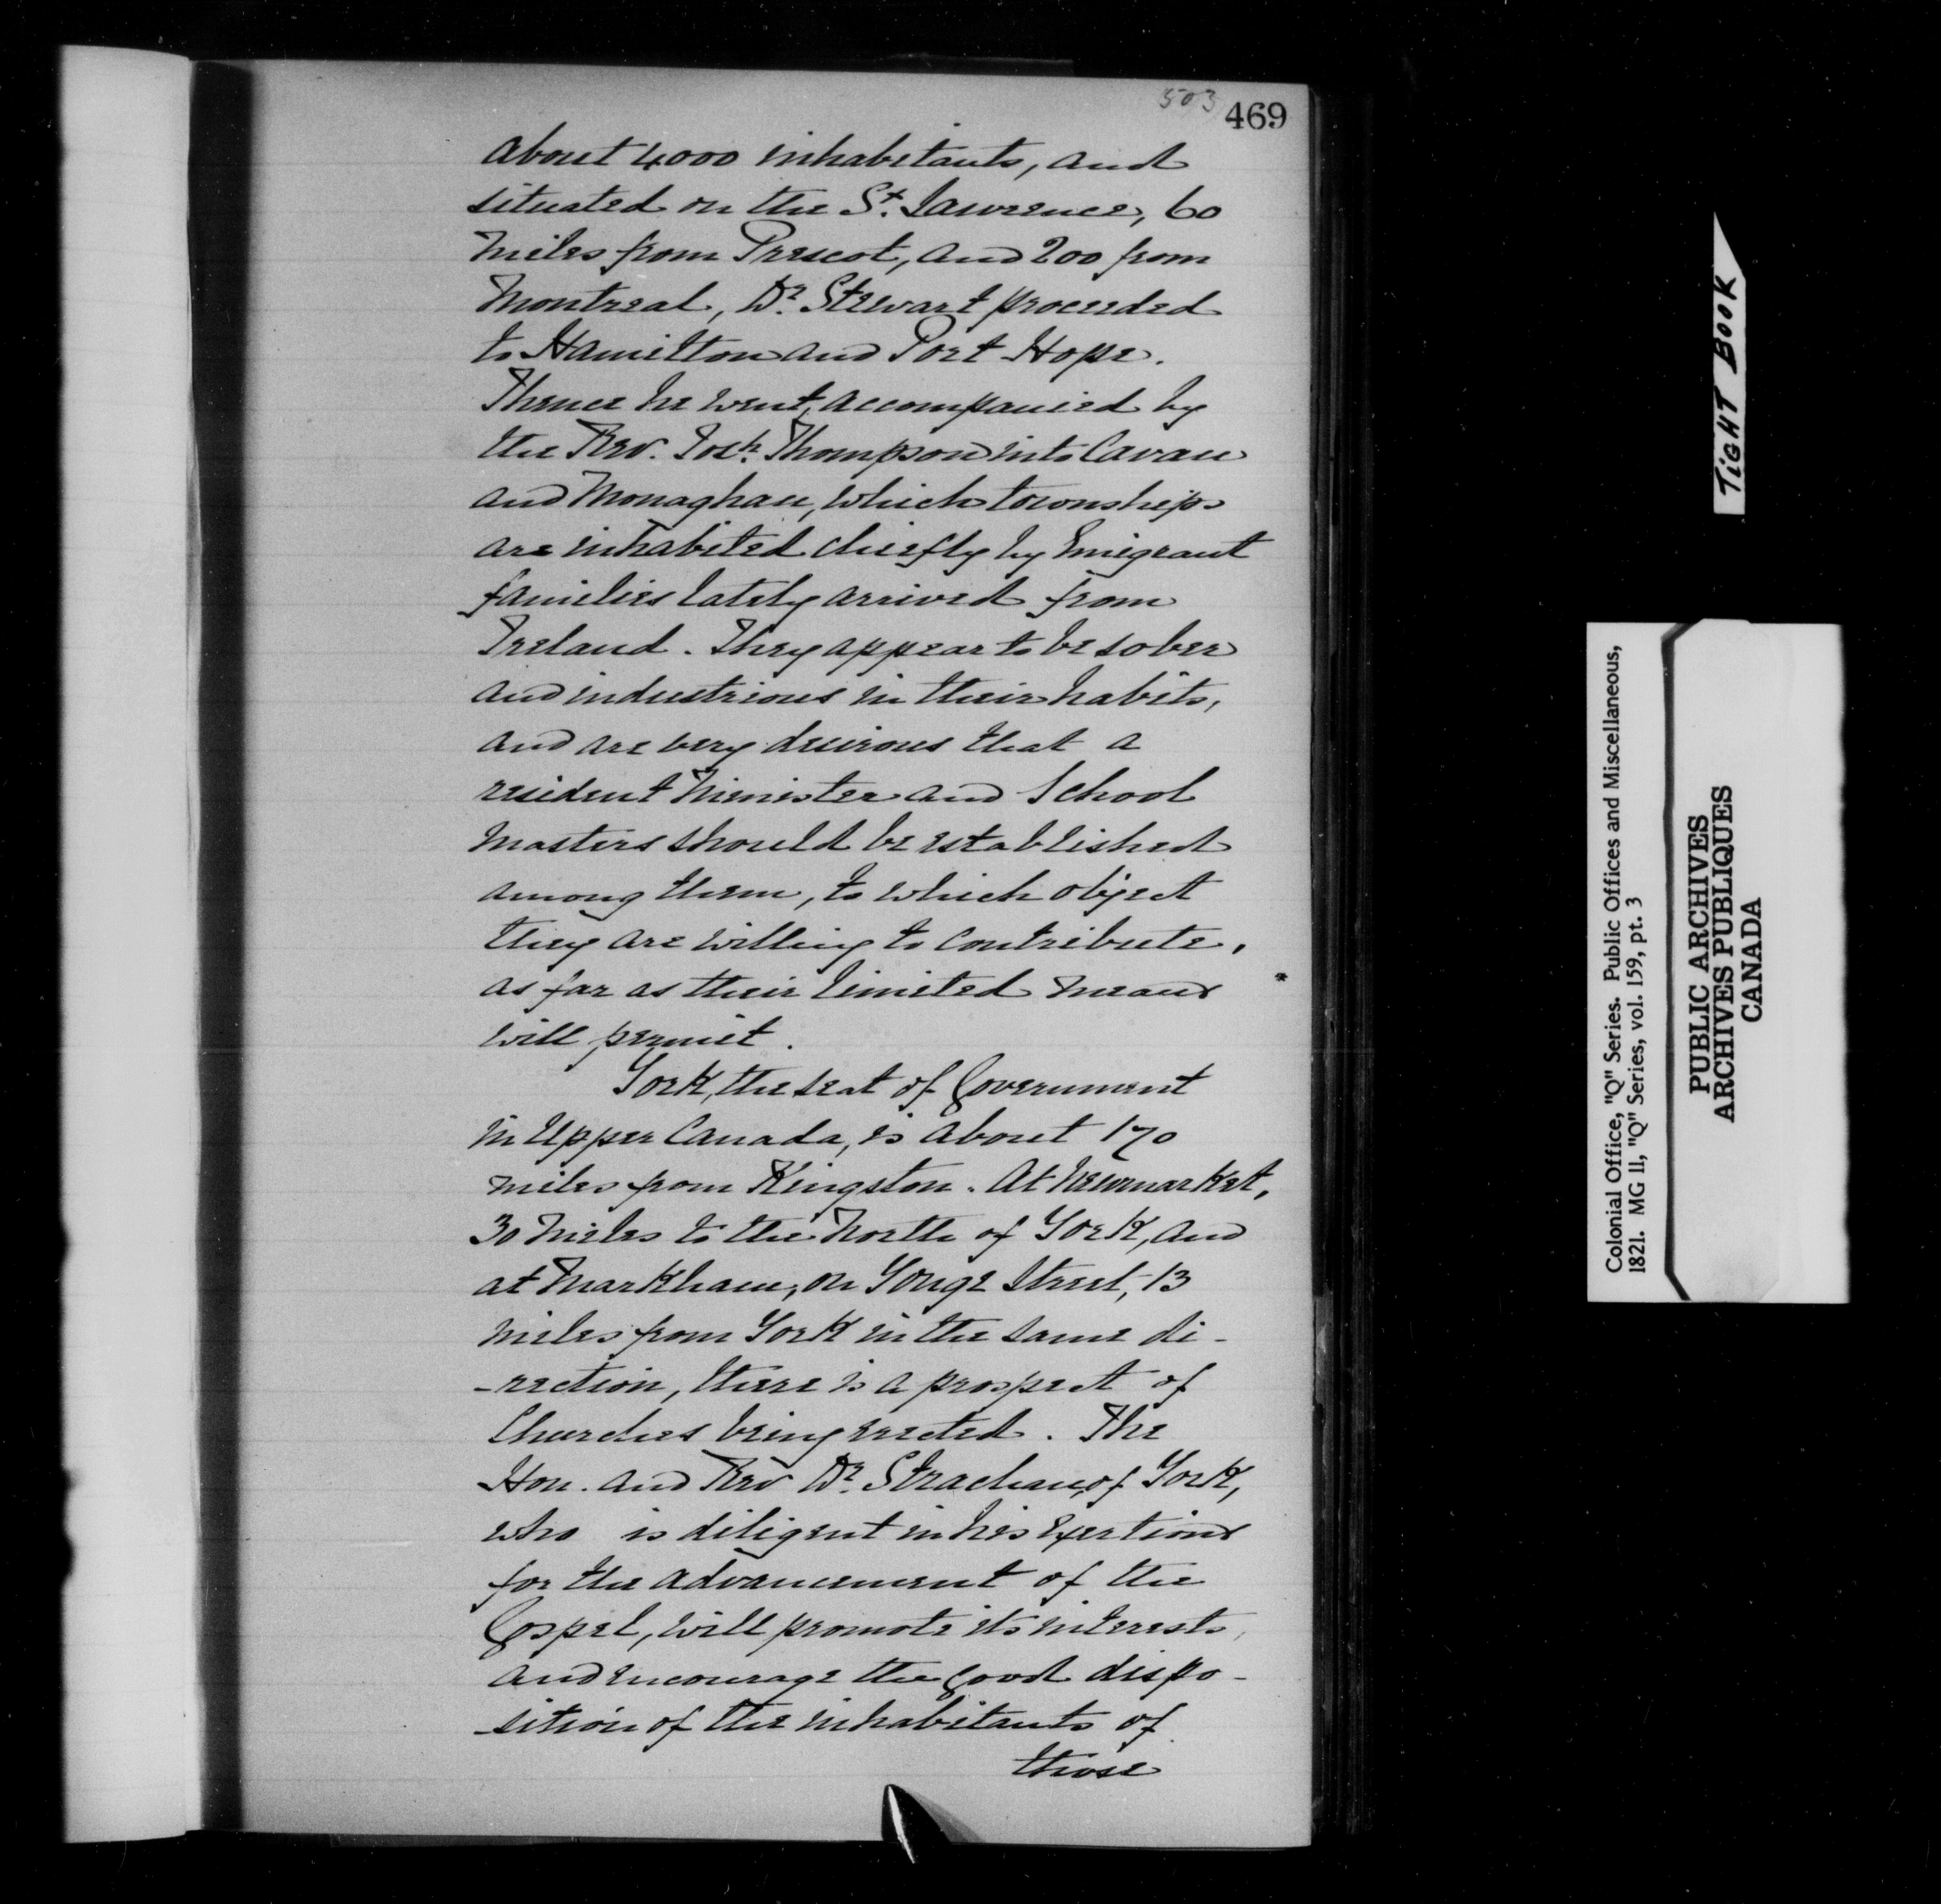 503
469
about 4000 inhabitants, and
situated on the St. Lawrence, 60
miles from Prescot, and 200 from
Montreal, Dr. Stewart proceeded
to Hamilton and Port Hope.
Thence he went, accompanied by
the Rev. Josh. Thompson into Cavan
and Monaghan, which townships
are inhabited chiefly by Emigrant
families lately arrived from
Ireland. They appear to be sober
and industrious in their habits,
and are very desirous that a
resident Minister and School
masters should be established
among them, to which object
they are willing to contribute,
as far as their limited means
will permit.
York, the seat of Government
in Upper Canada, is about 170
miles from Kingston. At Newmarket,
30 miles to the North of York, and
at Markham, on Yonge Street, 13
miles from York in the same di-
-rection, there is a prospect of
Churches being erected. The
Hon. and Rev Dr. Strachan, of York,
who is diligent in his exertions
for the advancement of the
Gospel, will promote its interests,
and encourage the good dispo-
-sition of the inhabitants of
those
TIGHT BOOK
Colonial Office, "Q" Series. Public Offices and Miscellaneous,
1821. MG 11, "Q" Series, vol. 159, pt. 3
PUBLIC ARCHIVES
ARCHIVES PUBLIQUES
CANADA